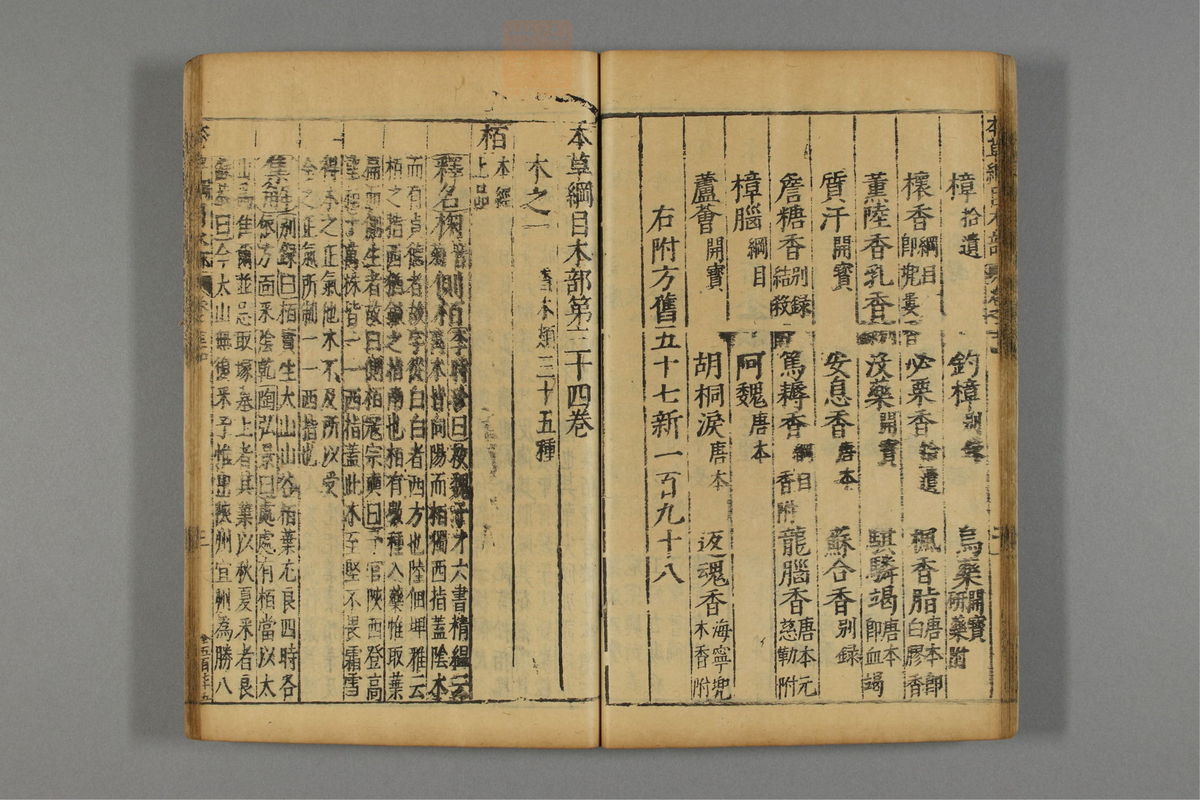 樟拾遺 釣樟別錄 烏藥開寶研藥附
櫰香綱目即兜婁香 必栗香拾遺 楓香脂唐本即白膠香
薰陸香乳香 沒藥開寶 騏驎竭唐本即血竭
質汗開寶 安息香唐本 蘇合香別錄
詹糖香別錄結殺附 篤耨香綱目香附 龍腦香唐本元慈勒附
樟腦綱目 阿魏唐本
蘆薈開寶 胡桐淚唐本 返魂香海寧兜木香附
右附方舊五十七新一百九十八
本草綱目木部第三十四卷
木之一 香木類三十五種
栢本經上品
釋名椈音菊側栢李時珍曰按魏子才六書精緼云
萬木皆向陽而栢獨西指蓋陰木
而有貞德者故字從白白者西方也陸佃埤雅云
栢之指西猶鍼之指南也栢有數種入藥惟取葉
扁而側生者故曰側栢寇宗奭曰予官陝西登高
望栢千萬株皆一一西指蓋此木至堅不畏霜雪
得木之正氣他木不及所以受
金之正氣所制一一西指也
集解別錄曰栢實生太山山谷栢葉尤良四時各
依方面采陰乾陶弘景曰處處有栢當以太
山爲佳爾並忌取塚墓上者其葉以秋夏采者良
蘇恭曰今太山無復采子惟出陝州宜州為勝八